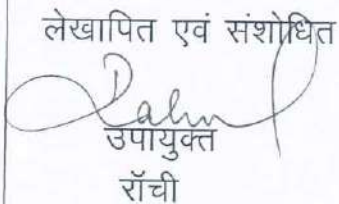 लेखापित एवं संशोधित
उपायुक्त
राँची